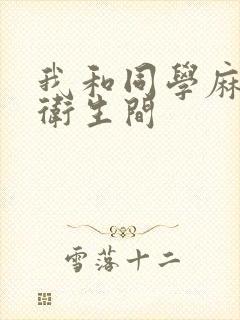 我和同學麻
衛生間
雪落十二